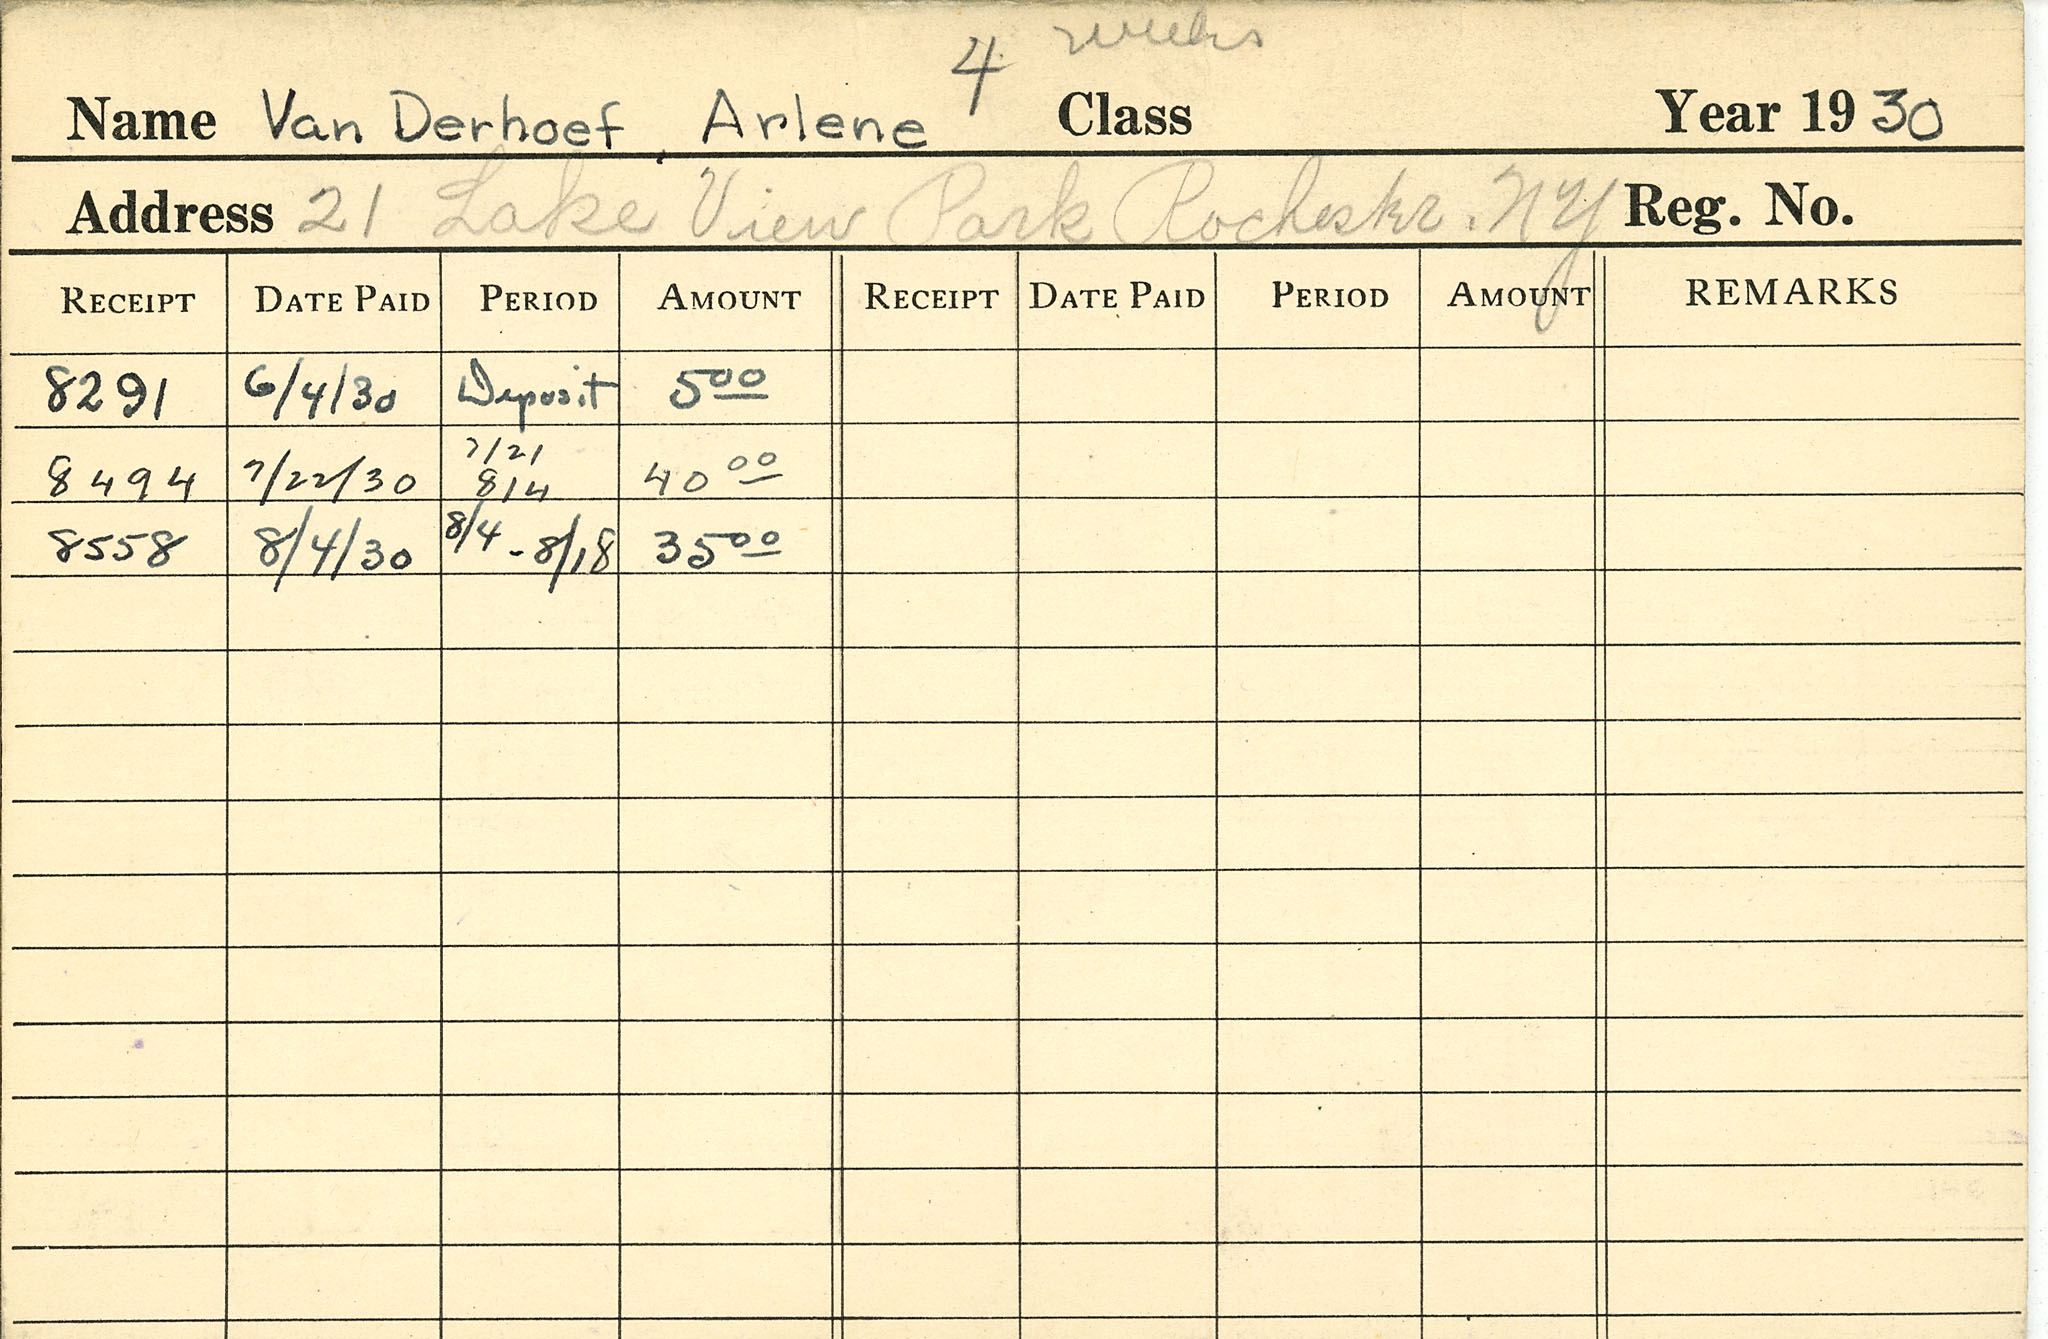 4 weeks
Name Van Derhoef, Arlene Class Year 19 30
Address 21 Lake View Park Rochester. NY Reg. No.
RECEIPT DATE PAID PERIOD AMOUNT RECEIPT DATE PAID PERIOD AMOUNT REMARKS
8291 6/4/30 Deposit 5 00
8494 7/22/30 7/21 8/4 40 00
8558 8/4/30 8/4 - 8/18 35 00